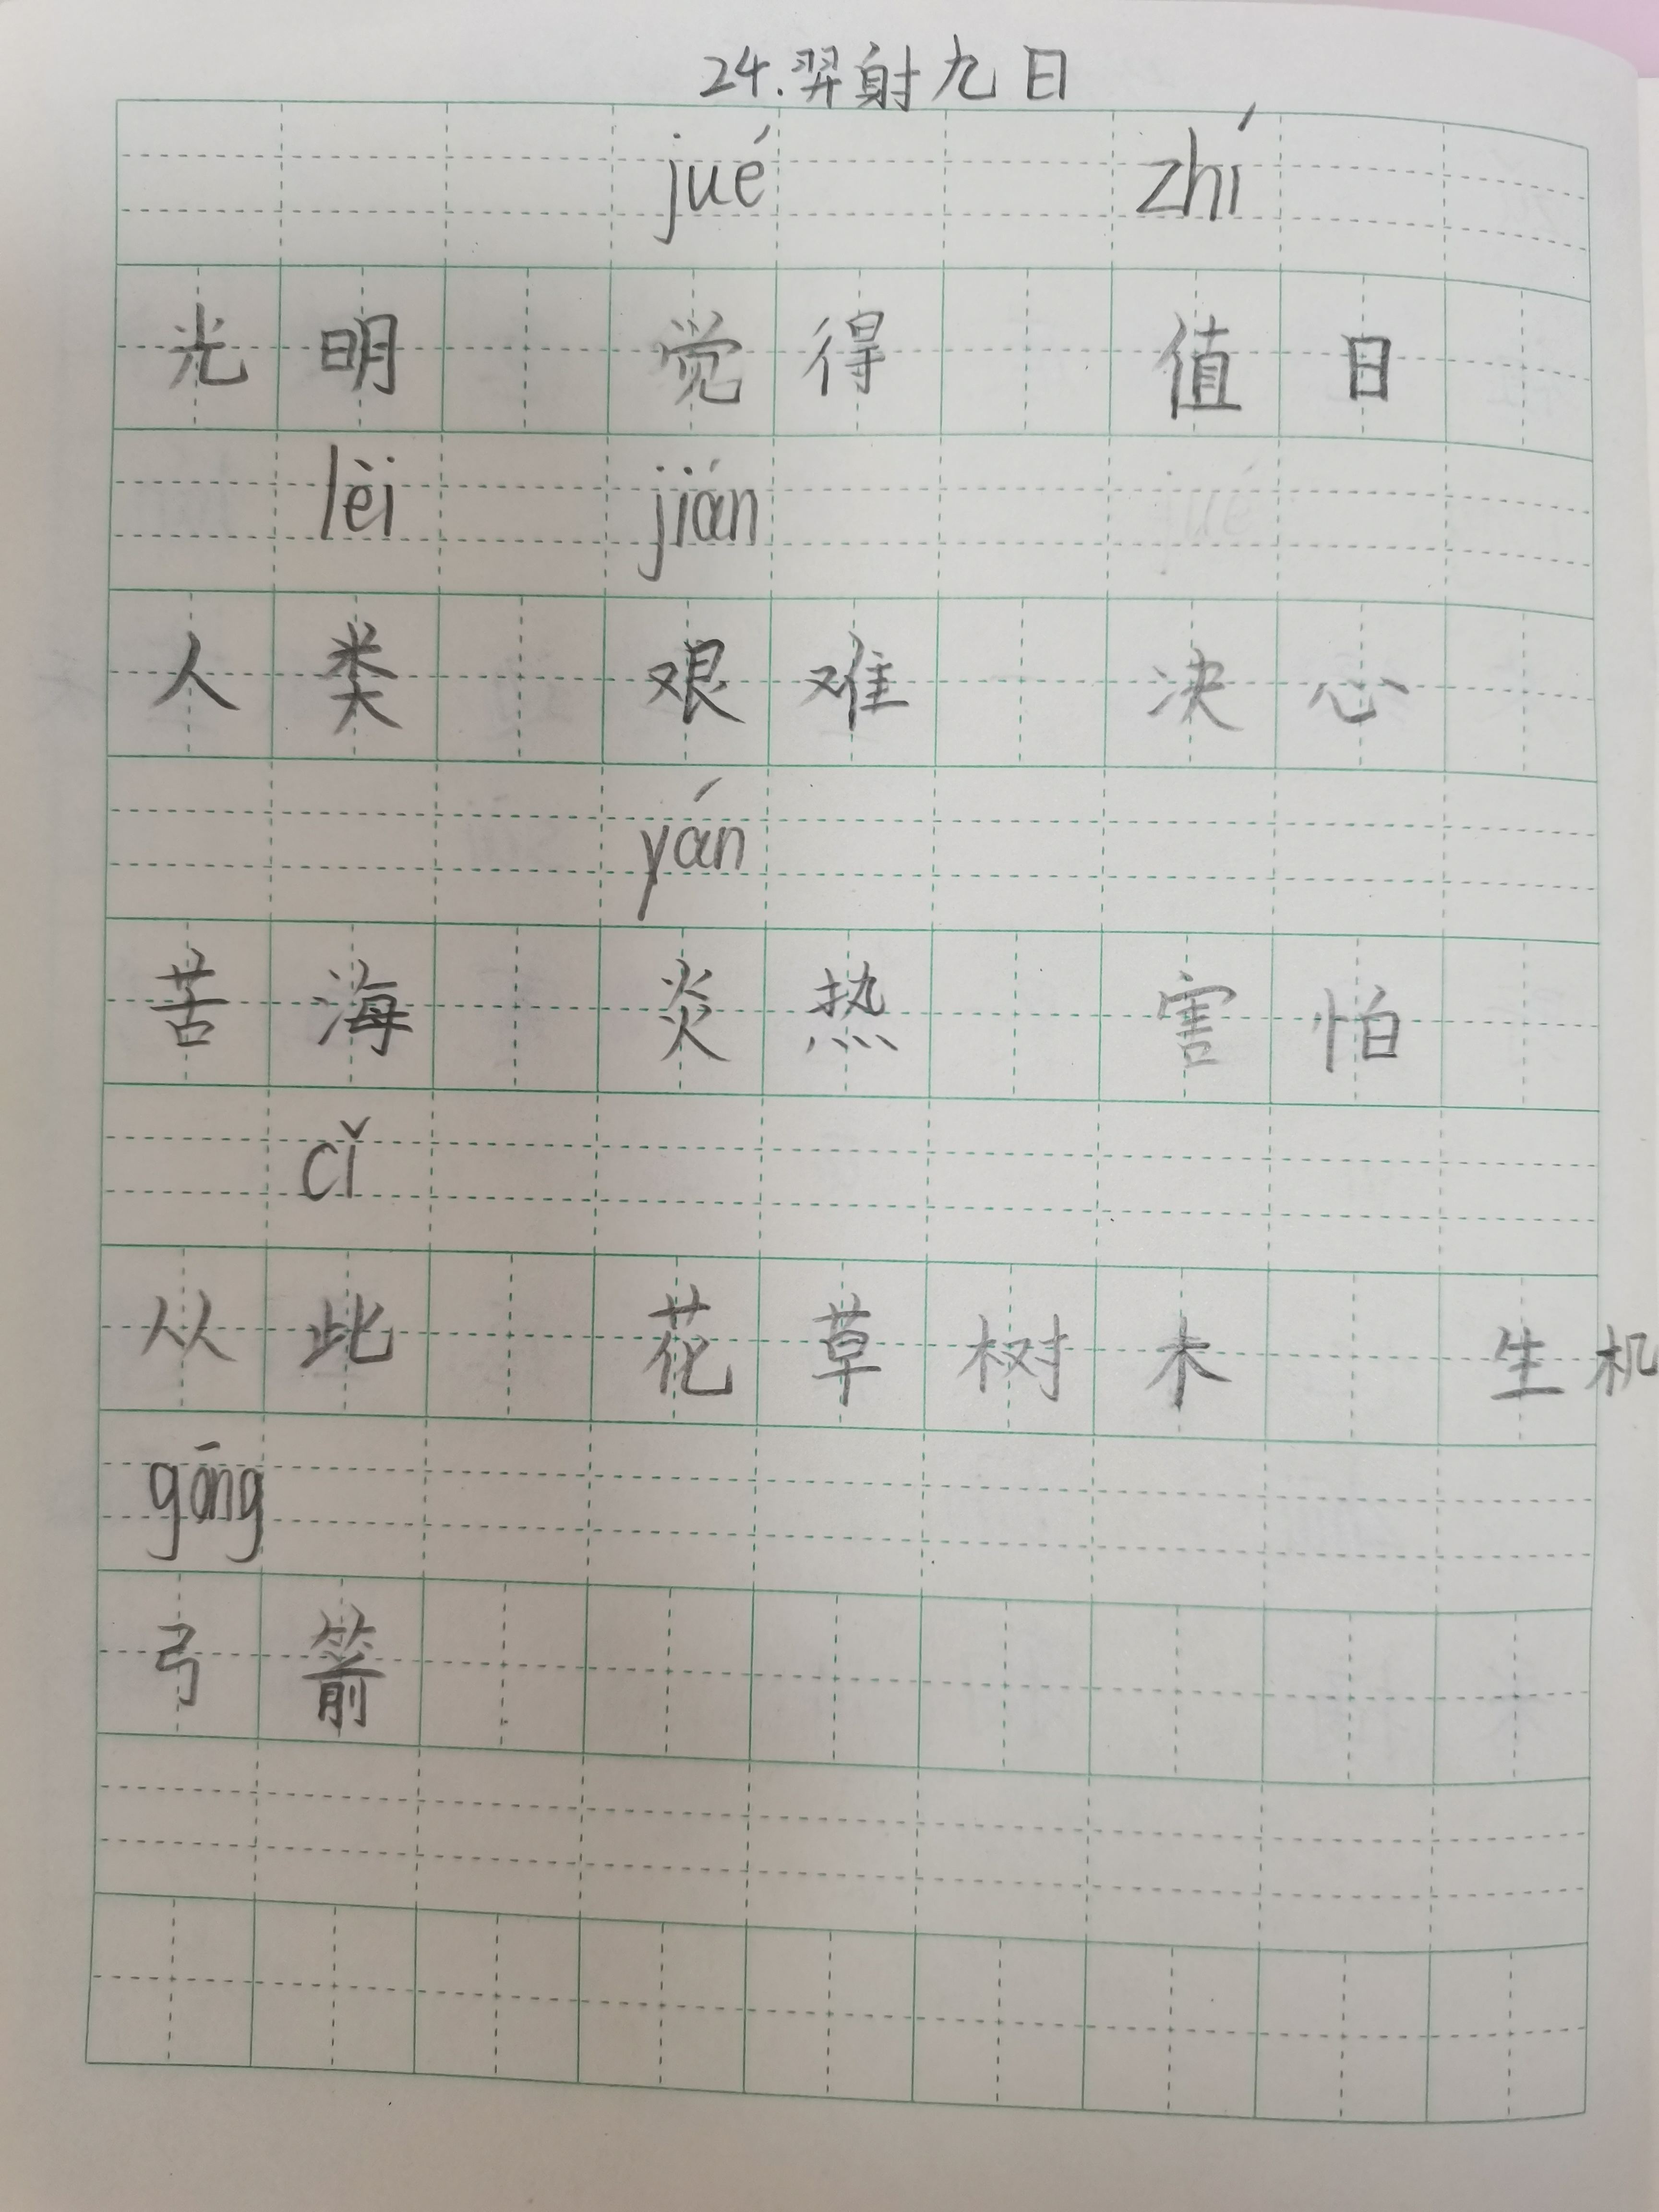 24.羿射九日
jué zhí
光明 觉得 值日
lèi jián
人类 艰难 决心
yán
苦海 炎热 害怕
cǐ
从此 花草树木 生机
gōng
弓箭